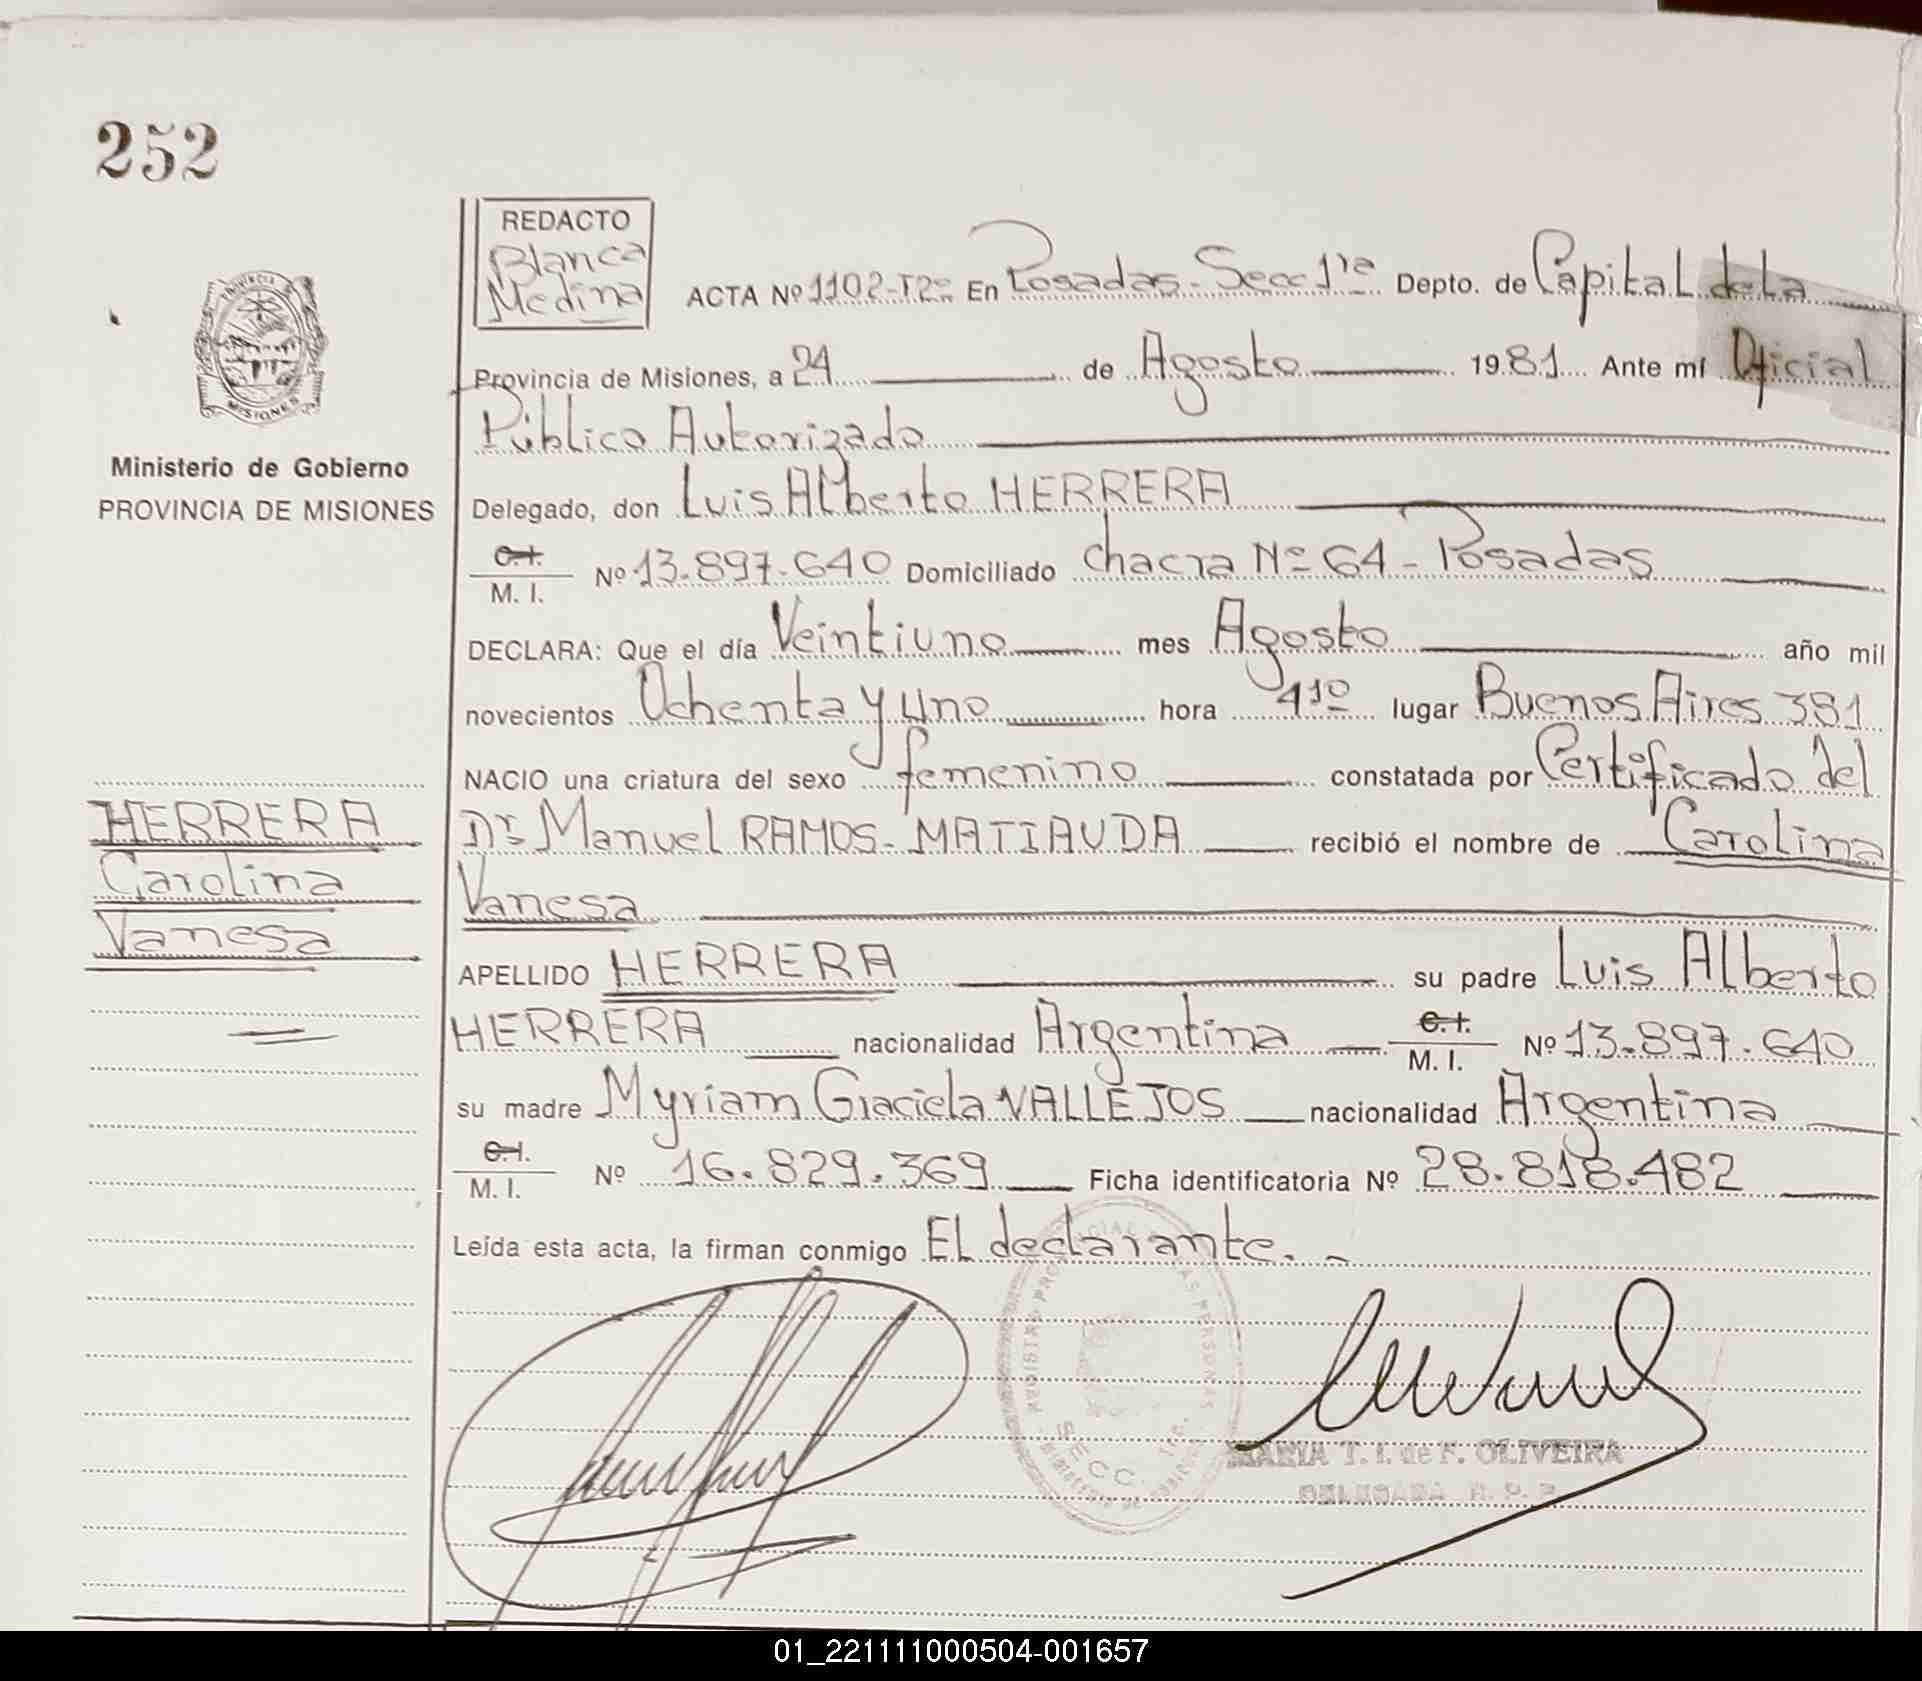 252
REDACTO
Blanca
Medina
ACTA Nº 1102-T2º En Posadas - Secc 1ra Depto. de Capital de la
Provincia de Misiones, a 24 de Agosto 1981 Ante mí Oficial
Público Autorizado
Ministerio de Gobierno
PROVINCIA DE MISIONES
Delegado, don Luis Alberto HERRERA
C.I.
M. I. Nº 13.897.640 Domiciliado Chacra Nº 64 - Posadas
DECLARA: Que el día Veintiuno mes Agosto año mil
novecientos Ochenta y uno hora 4:10 lugar Buenos Aires 381
NACIO una criatura del sexo femenino constatada por Certificado del
Dr. Manuel RAMOS - MATIAUDA recibió el nombre de Carolina
Vanesa
HERRERA
Carolina
Vanesa
APELLIDO HERRERA su padre Luis Alberto
HERRERA nacionalidad Argentina C.I. M. I. Nº 13.897.640
su madre Myriam Graciela VALLEJOS nacionalidad Argentina
C.I.
M. I. Nº 16.829.369 Ficha identificatoria Nº 28.818.482
Leída esta acta, la firman conmigo El declarante.
MARIA T. I. de F. OLIVEIRA
DELEGADA R. P. P.
SECC. 1ra.
01_221111000504-001657